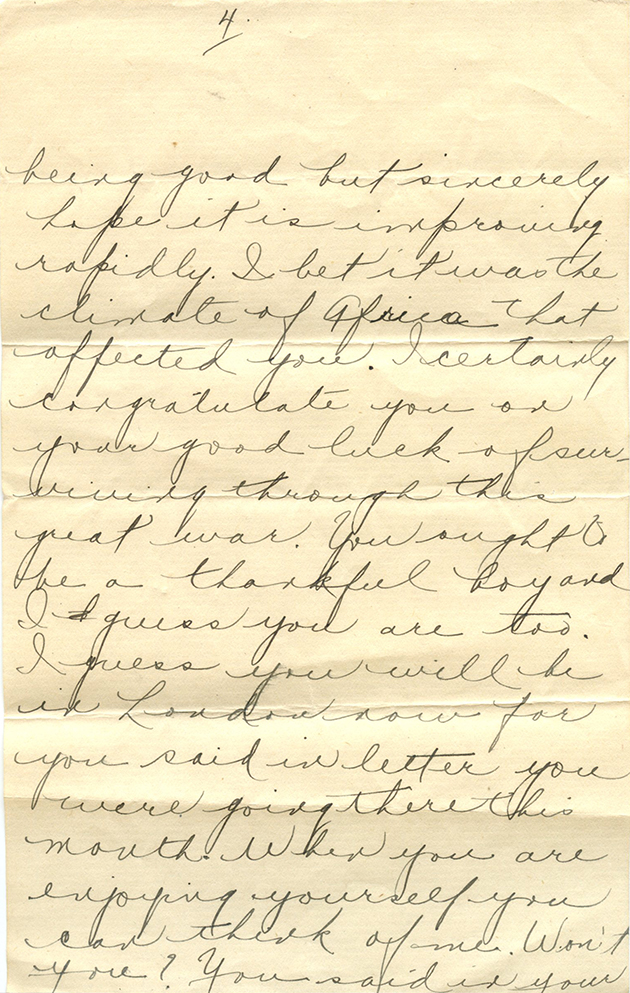 4.
being good but sincerely
hope it is improving
rapidly. I bet it was the
climate of Africa that
affected you. I certainly
congratulate you on
your good luck of sur-
viving through this
great war. You ought to
be a thankful boy and
I guess you are too.
I guess you will be
in London now for
you said in letter you
were going there this
month. When you are
enjoying yourself you
can think of me. Won't
you? You said in your